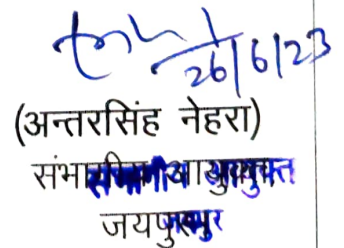 26/6/23
(अन्तरसिंह नेहरा)
संभागीय आयुक्त
जयपुर